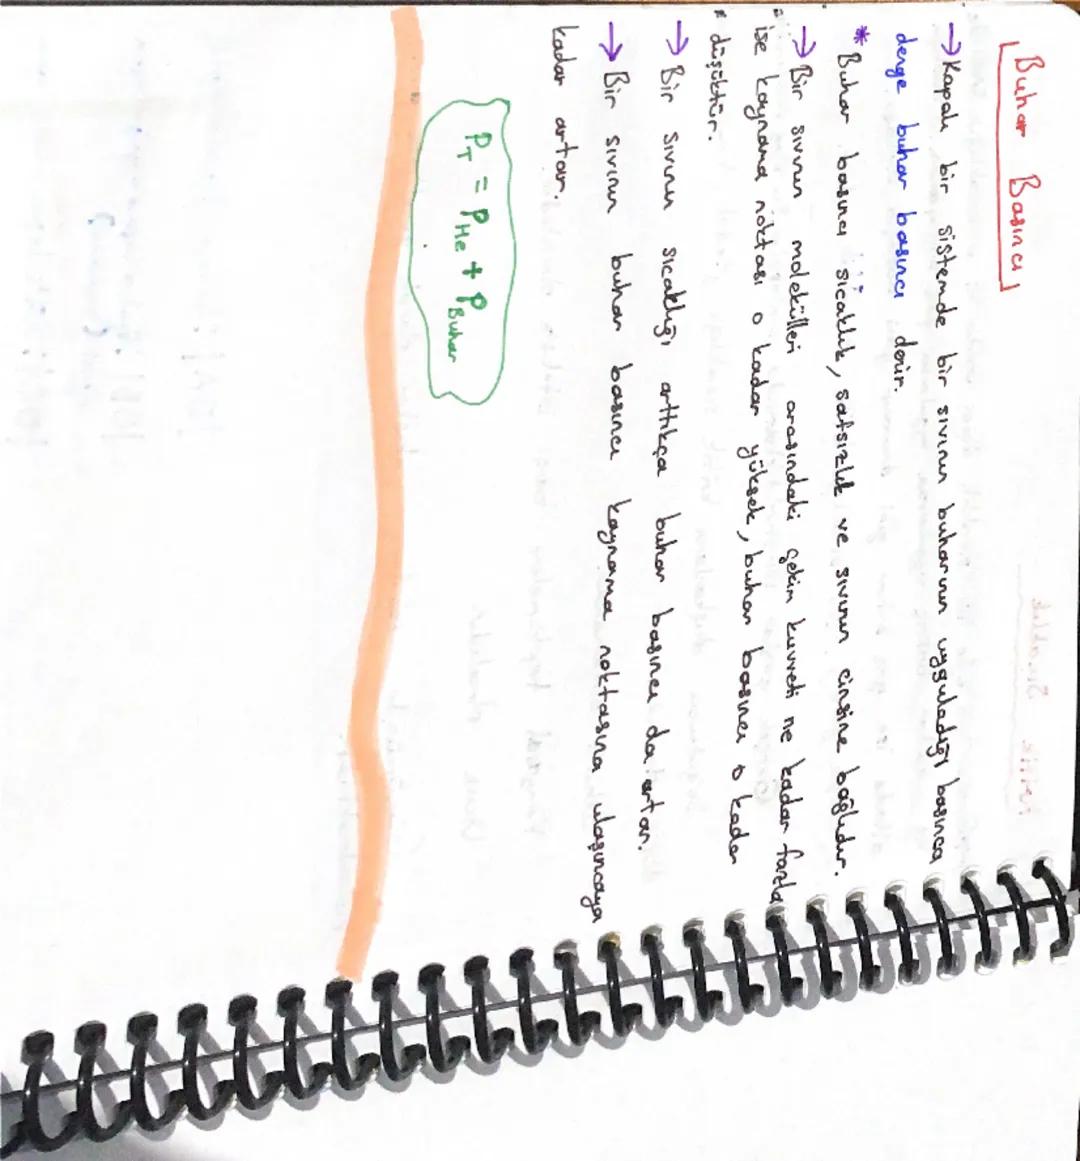 Buhar Basıncı
→ Kapalı bir sistemde bir sıvının buharının uyguladığı basınca
denge buhar basıncı denir.
* Buhar basıncı sıcaklık, safsızlık ve sıvının cinsine bağlıdır.
→ Bir sıvının molekülleri arasındaki çekim kuvveti ne kadar fazla
ise kaynama noktası o kadar yüksek, buhar basıncı o kadar
düşüktür.
→ Bir sıvının sıcaklığı arttıkça buhar basıncı da artar.
→ Bir sıvının buhar basıncı kaynama noktasına ulaşıncaya
kadar artar.
P_T = P_He + P_Buhar